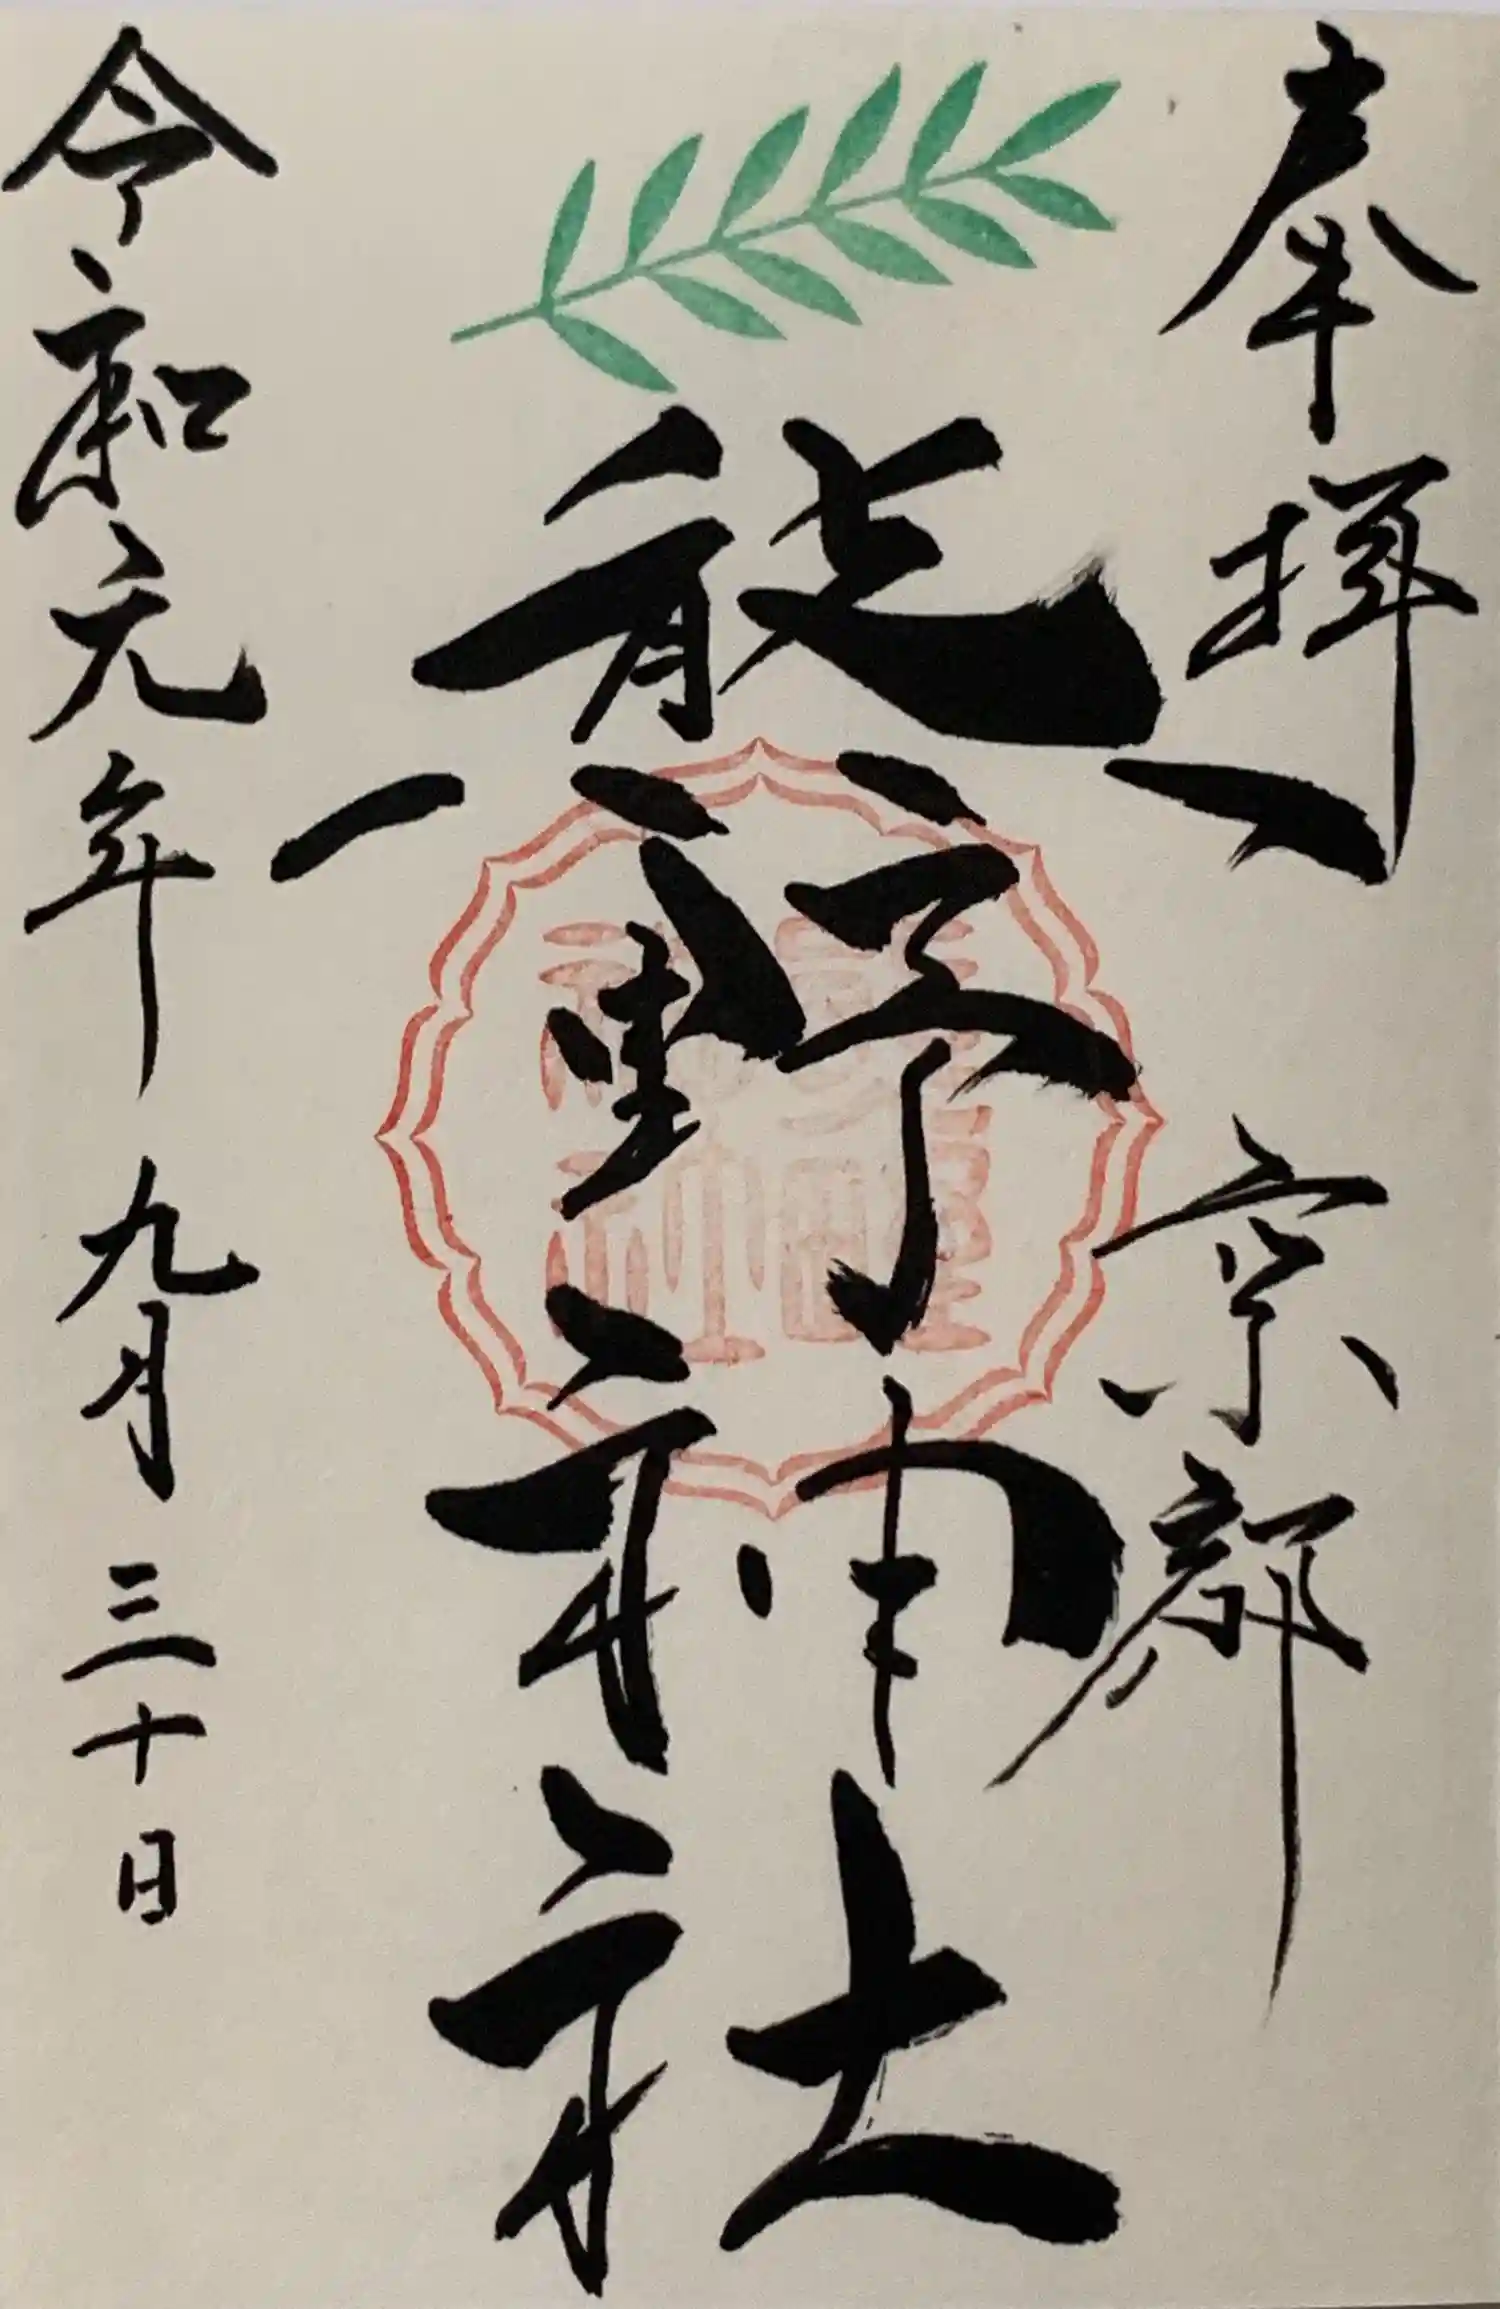 奉拝　京都
熊野神社
令和元年九月三十日